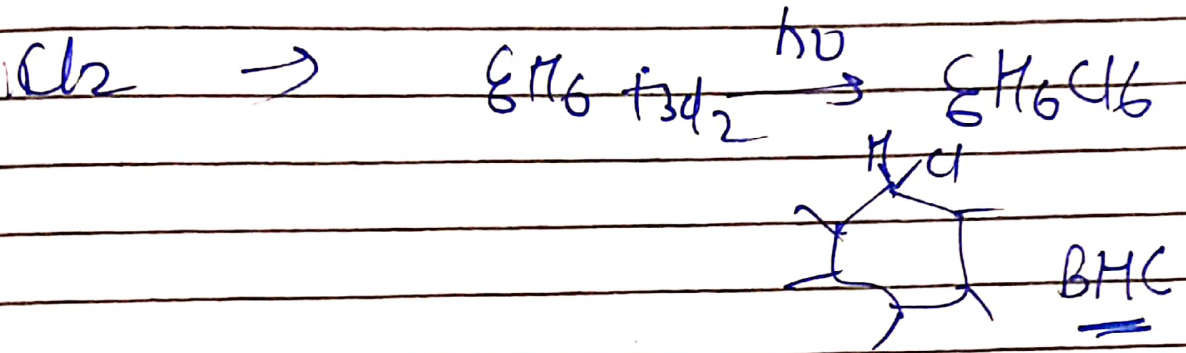 Cl2 → C6H6 + 3Cl2 hν → C6H6Cl6
H Cl
BHC